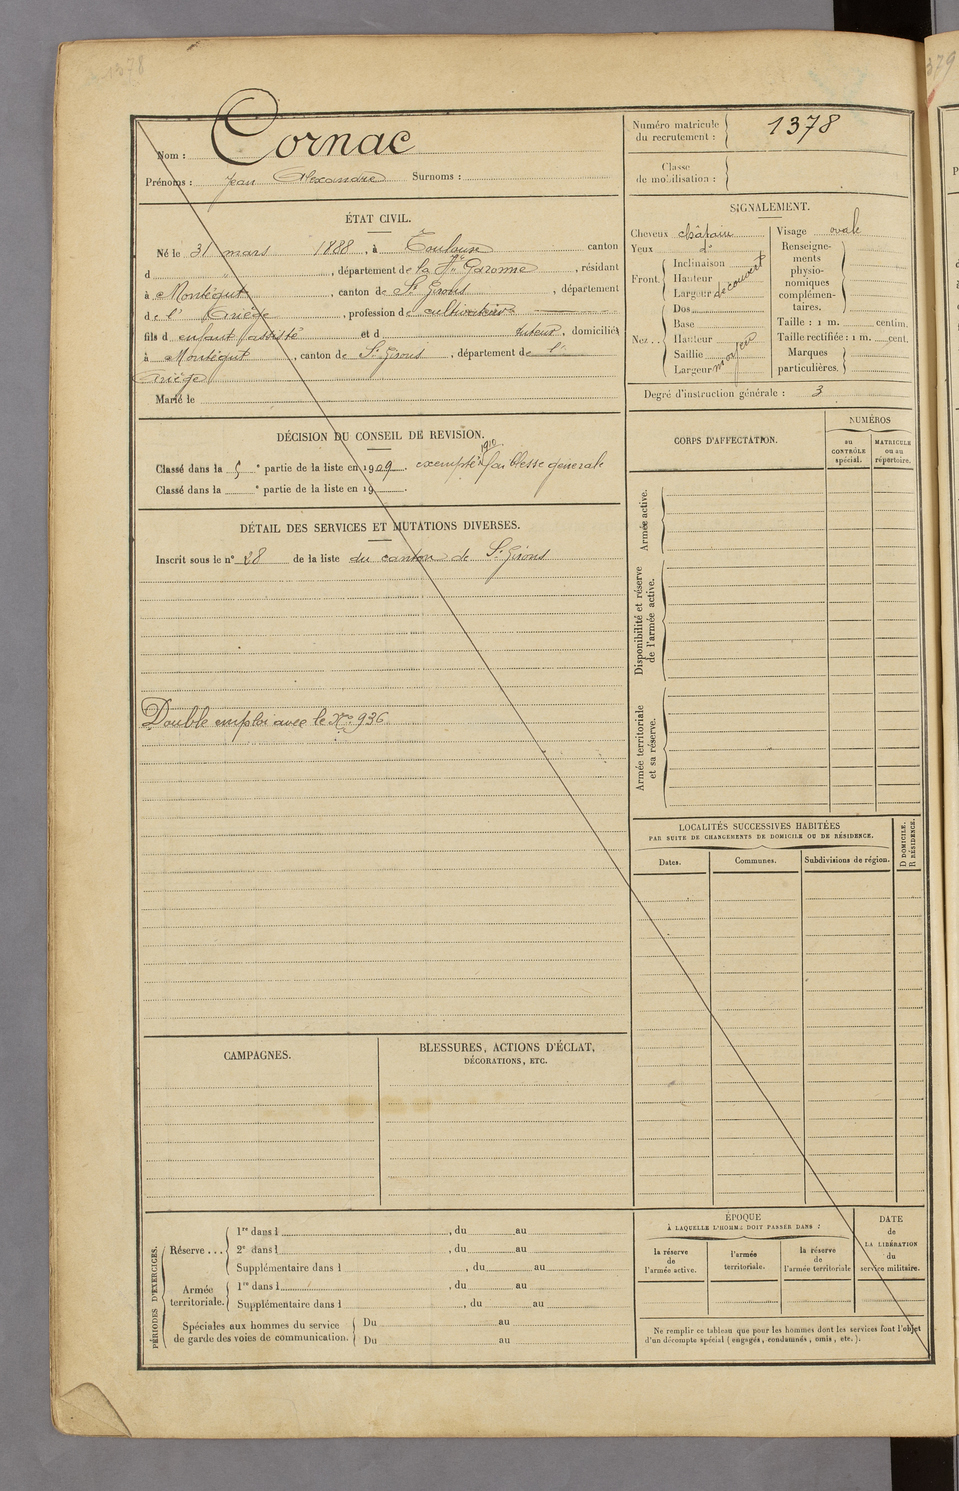 1378
Nom : Cornac
Prénoms : Jean Alexandre Surnoms :
Numéro matricule du recrutement : 1378
Classe de mobilisation :
ÉTAT CIVIL.
Né le 31 mars 1888, à Toulouse canton
d , département de la Hte Garonne, résidant
à Montégut, canton de St Girons, département
de l'Ariège, profession de cultivateur
fils d enfant assisté et d tuteur, domiciliés
à Montégut, canton de St Girons, département de l'
Ariège
Marié le
SIGNALEMENT.
Cheveux châtain
Yeux do
Front. Inclinaison
Hauteur
Largeur découvert
Nez... Dos
Base
Hauteur
Saillie
Largeur moyen
Visage ovale
Renseigne-
ments
physio-
nomiques
complémen-
taires.
Taille : 1 m. centim.
Taille rectifiée : 1 m. cent.
Marques
particulières.
Degré d'instruction générale : 3
DÉCISION DU CONSEIL DE REVISION.
1910
Classé dans la 5e partie de la liste en 1909. exempté faiblesse générale
Classé dans la e partie de la liste en 19 .
DÉTAIL DES SERVICES ET MUTATIONS DIVERSES.
Inscrit sous le n° 28 de la liste du canton de St Girons
Double emploi avec le No 936
CORPS D'AFFECTATION.
NUMÉROS
au
CONTRÔLE
spécial.
MATRICULE
ou au
répertoire.
Armée active.
Disponibilité et réserve
de l'armée active.
Armée territoriale
et sa réserve.
LOCALITÉS SUCCESSIVES HABITÉES
PAR SUITE DE CHANGEMENTS DE DOMICILE OU DE RÉSIDENCE.
Dates. Communes. Subdivisions de région.
D DOMICILE.
R RÉSIDENCE.
CAMPAGNES.
BLESSURES, ACTIONS D'ÉCLAT,
DÉCORATIONS, ETC.
PÉRIODES D'EXERCICES.
Réserve... 1re dans l , du au
2e dans l , du au
Supplémentaire dans l , du au
Armée territoriale. 1re dans l , du au
Supplémentaire dans l , du au
Spéciales aux hommes du service Du au
de garde des voies de communication. Du au
ÉPOQUE
À LAQUELLE L'HOMME DOIT PASSER DANS :
la réserve
de
l'armée active.
l'armée
territoriale.
la réserve
de
l'armée territoriale
DATE
de
LA LIBÉRATION
du
service militaire.
Ne remplir ce tableau que pour les hommes dont les services font l'objet
d'un décompte spécial (engagés, condamnés, omis, etc.).